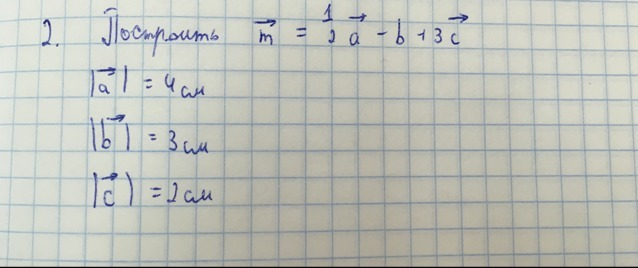 2. Построить m⃗ = 1/2 a⃗ - b + 3c⃗
|a⃗| = 4 см
|b⃗| = 3 см
|c⃗| = 2 см